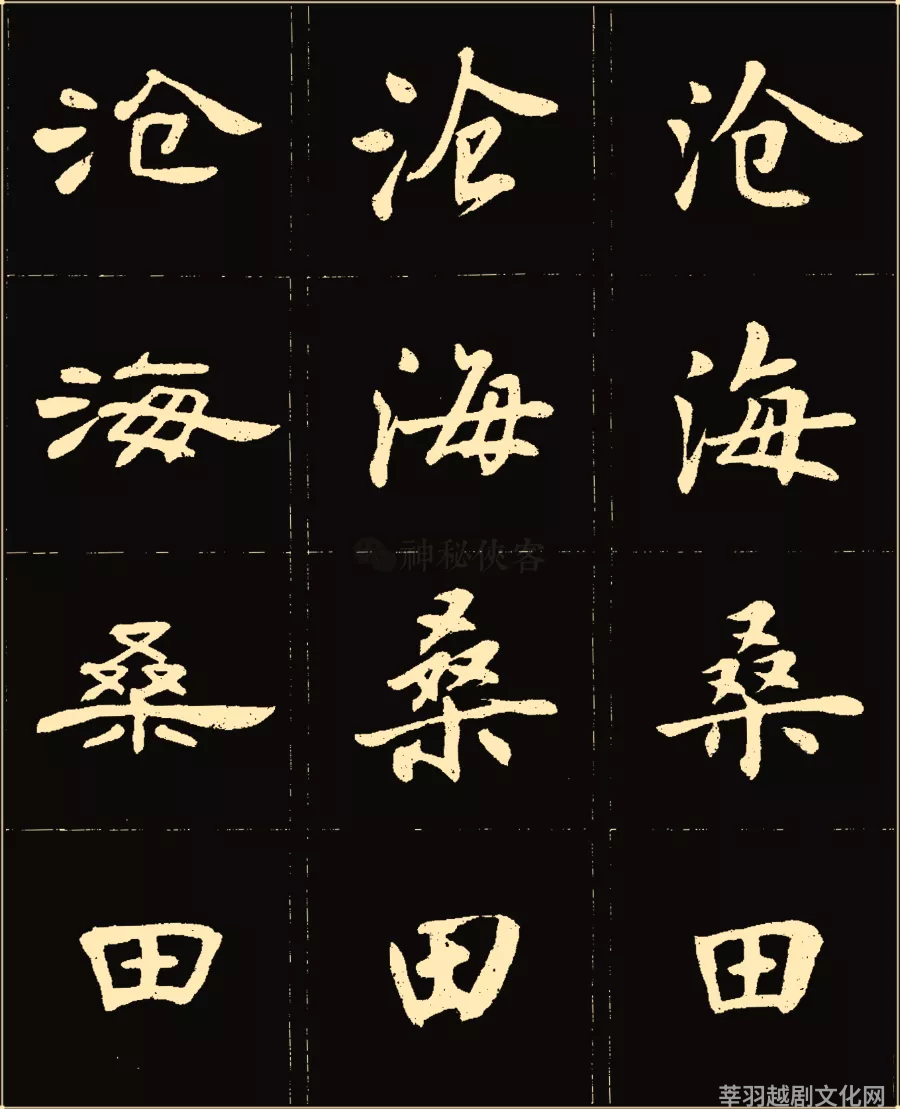 沧海桑田
沧海桑田
沧海桑田
神秘侠客
莘羽越剧文化网